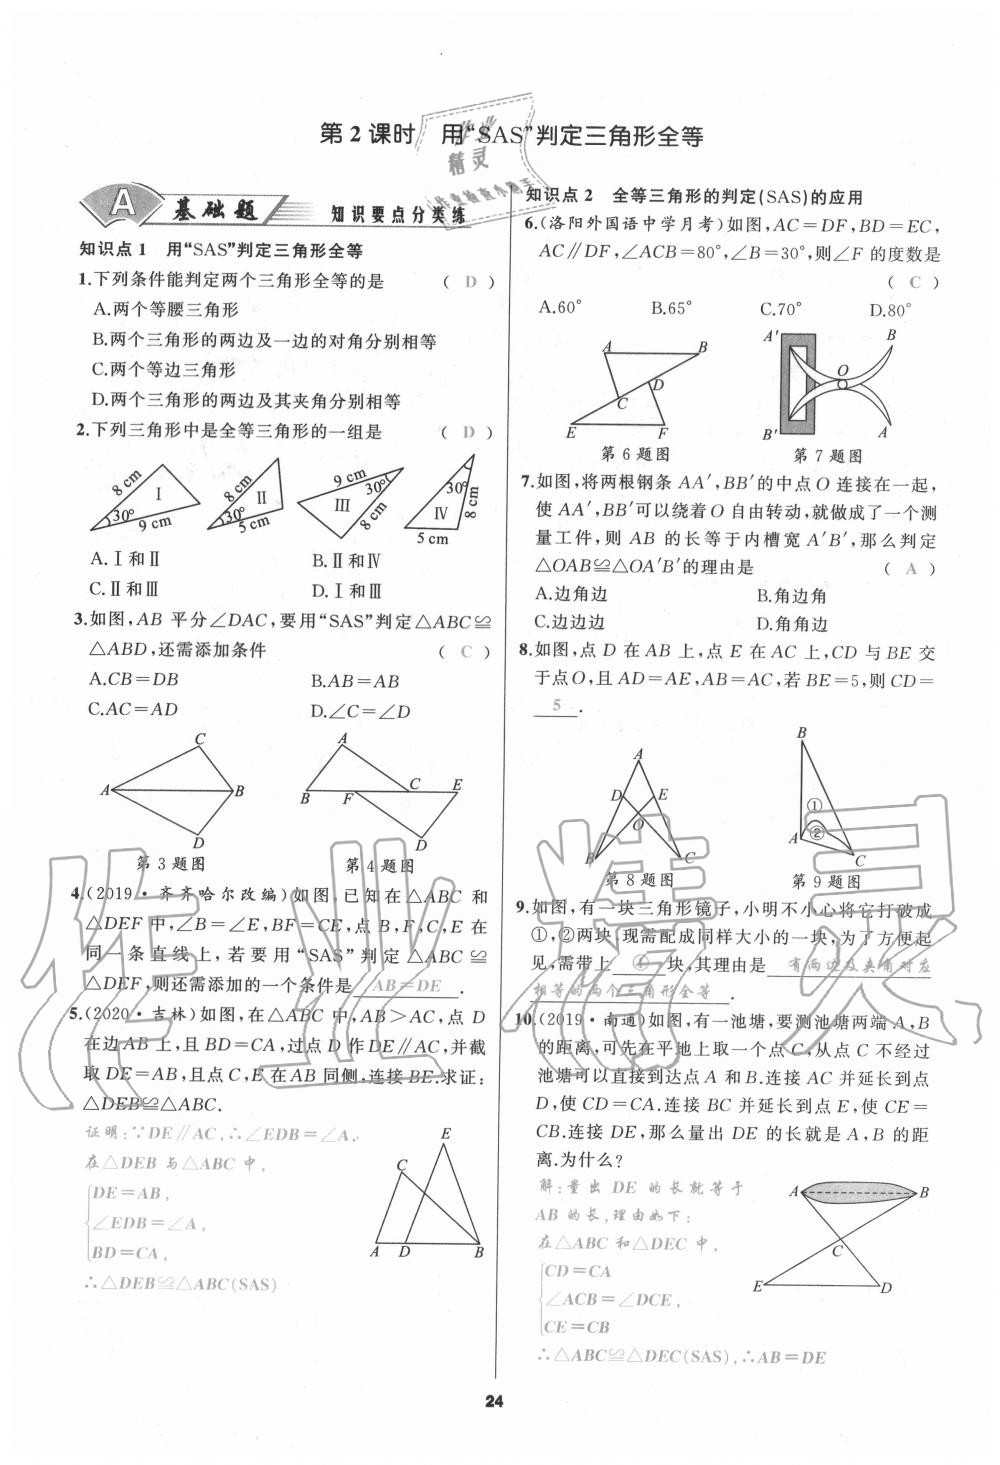 第2课时 用“SAS”判定三角形全等
作业
精灵
作业检查小助手
A 基础题 知识要点分类练
知识点1 用“SAS”判定三角形全等
1.下列条件能判定两个三角形全等的是 ( D )
A.两个等腰三角形
B.两个三角形的两边及一边的对角分别相等
C.两个等边三角形
D.两个三角形的两边及其夹角分别相等
2.下列三角形中是全等三角形的一组是 ( D )
8 cm Ⅰ 30° 9 cm
8 cm Ⅱ 30° 5 cm
9 cm 30° Ⅲ 8 cm
30° Ⅳ 8 cm 5 cm
A.Ⅰ和Ⅱ B.Ⅱ和Ⅳ
C.Ⅱ和Ⅲ D.Ⅰ和Ⅲ
3.如图,AB 平分∠DAC,要用“SAS”判定△ABC≌
△ABD,还需添加条件 ( C )
A.CB=DB B.AB=AB
C.AC=AD D.∠C=∠D
A B C D
A B C D E F
第3题图 第4题图
4.(2019·齐齐哈尔改编)如图,已知在△ABC 和
△DEF 中,∠B=∠E,BF=CE,点 B,F,C,E 在
同一条直线上,若要用“SAS”判定△ABC≌
△DEF,则还需添加的一个条件是 AB=DE .
5.(2020·吉林)如图,在△ABC 中,AB>AC,点 D
在边 AB 上,且 BD=CA,过点 D 作 DE∥AC,并截
取 DE=AB,且点 C,E 在 AB 同侧,连接 BE.求证:
△DEB≌△ABC.
证明:∵DE∥AC,∴∠EDB=∠A.
在△DEB 与△ABC 中,
DE=AB,
∠EDB=∠A,
BD=CA,
∴△DEB≌△ABC(SAS)
E C A D B
知识点2 全等三角形的判定(SAS)的应用
6.(洛阳外国语中学月考)如图,AC=DF,BD=EC,
AC∥DF,∠ACB=80°,∠B=30°,则∠F 的度数是
( C )
A.60° B.65° C.70° D.80°
A B D C E F
A′ B O B′ A
第6题图 第7题图
7.如图,将两根钢条 AA′,BB′的中点 O 连接在一起,
使 AA′,BB′可以绕着 O 自由转动,就做成了一个测
量工件,则 AB 的长等于内槽宽 A′B′,那么判定
△OAB≌△OA′B′的理由是 ( A )
A.边角边 B.角边角
C.边边边 D.角角边
8.如图,点 D 在 AB 上,点 E 在 AC 上,CD 与 BE 交
于点O,且 AD=AE,AB=AC,若 BE=5,则 CD=
5 .
A D E O B C
B ① A ② C
第8题图 第9题图
9.如图,有一块三角形镜子,小明不小心将它打破成
①,②两块,现需配成同样大小的一块,为了方便起
见,需带上 ① 块,其理由是 有两边及夹角对应
相等的两个三角形全等 .
10.(2019·南通)如图,有一池塘,要测池塘两端 A,B
的距离,可先在平地上取一个点 C,从点 C 不经过
池塘可以直接到达点 A 和 B.连接 AC 并延长到点
D,使 CD=CA.连接 BC 并延长到点 E,使 CE=
CB.连接 DE,那么量出 DE 的长就是 A,B 的距
离.为什么?
解:量出 DE 的长就等于
AB 的长,理由如下:
在△ABC 和△DEC 中,
CD=CA
∠ACB=∠DCE,
CE=CB
∴△ABC≌△DEC(SAS),∴AB=DE
A B C E D
作业精灵
24